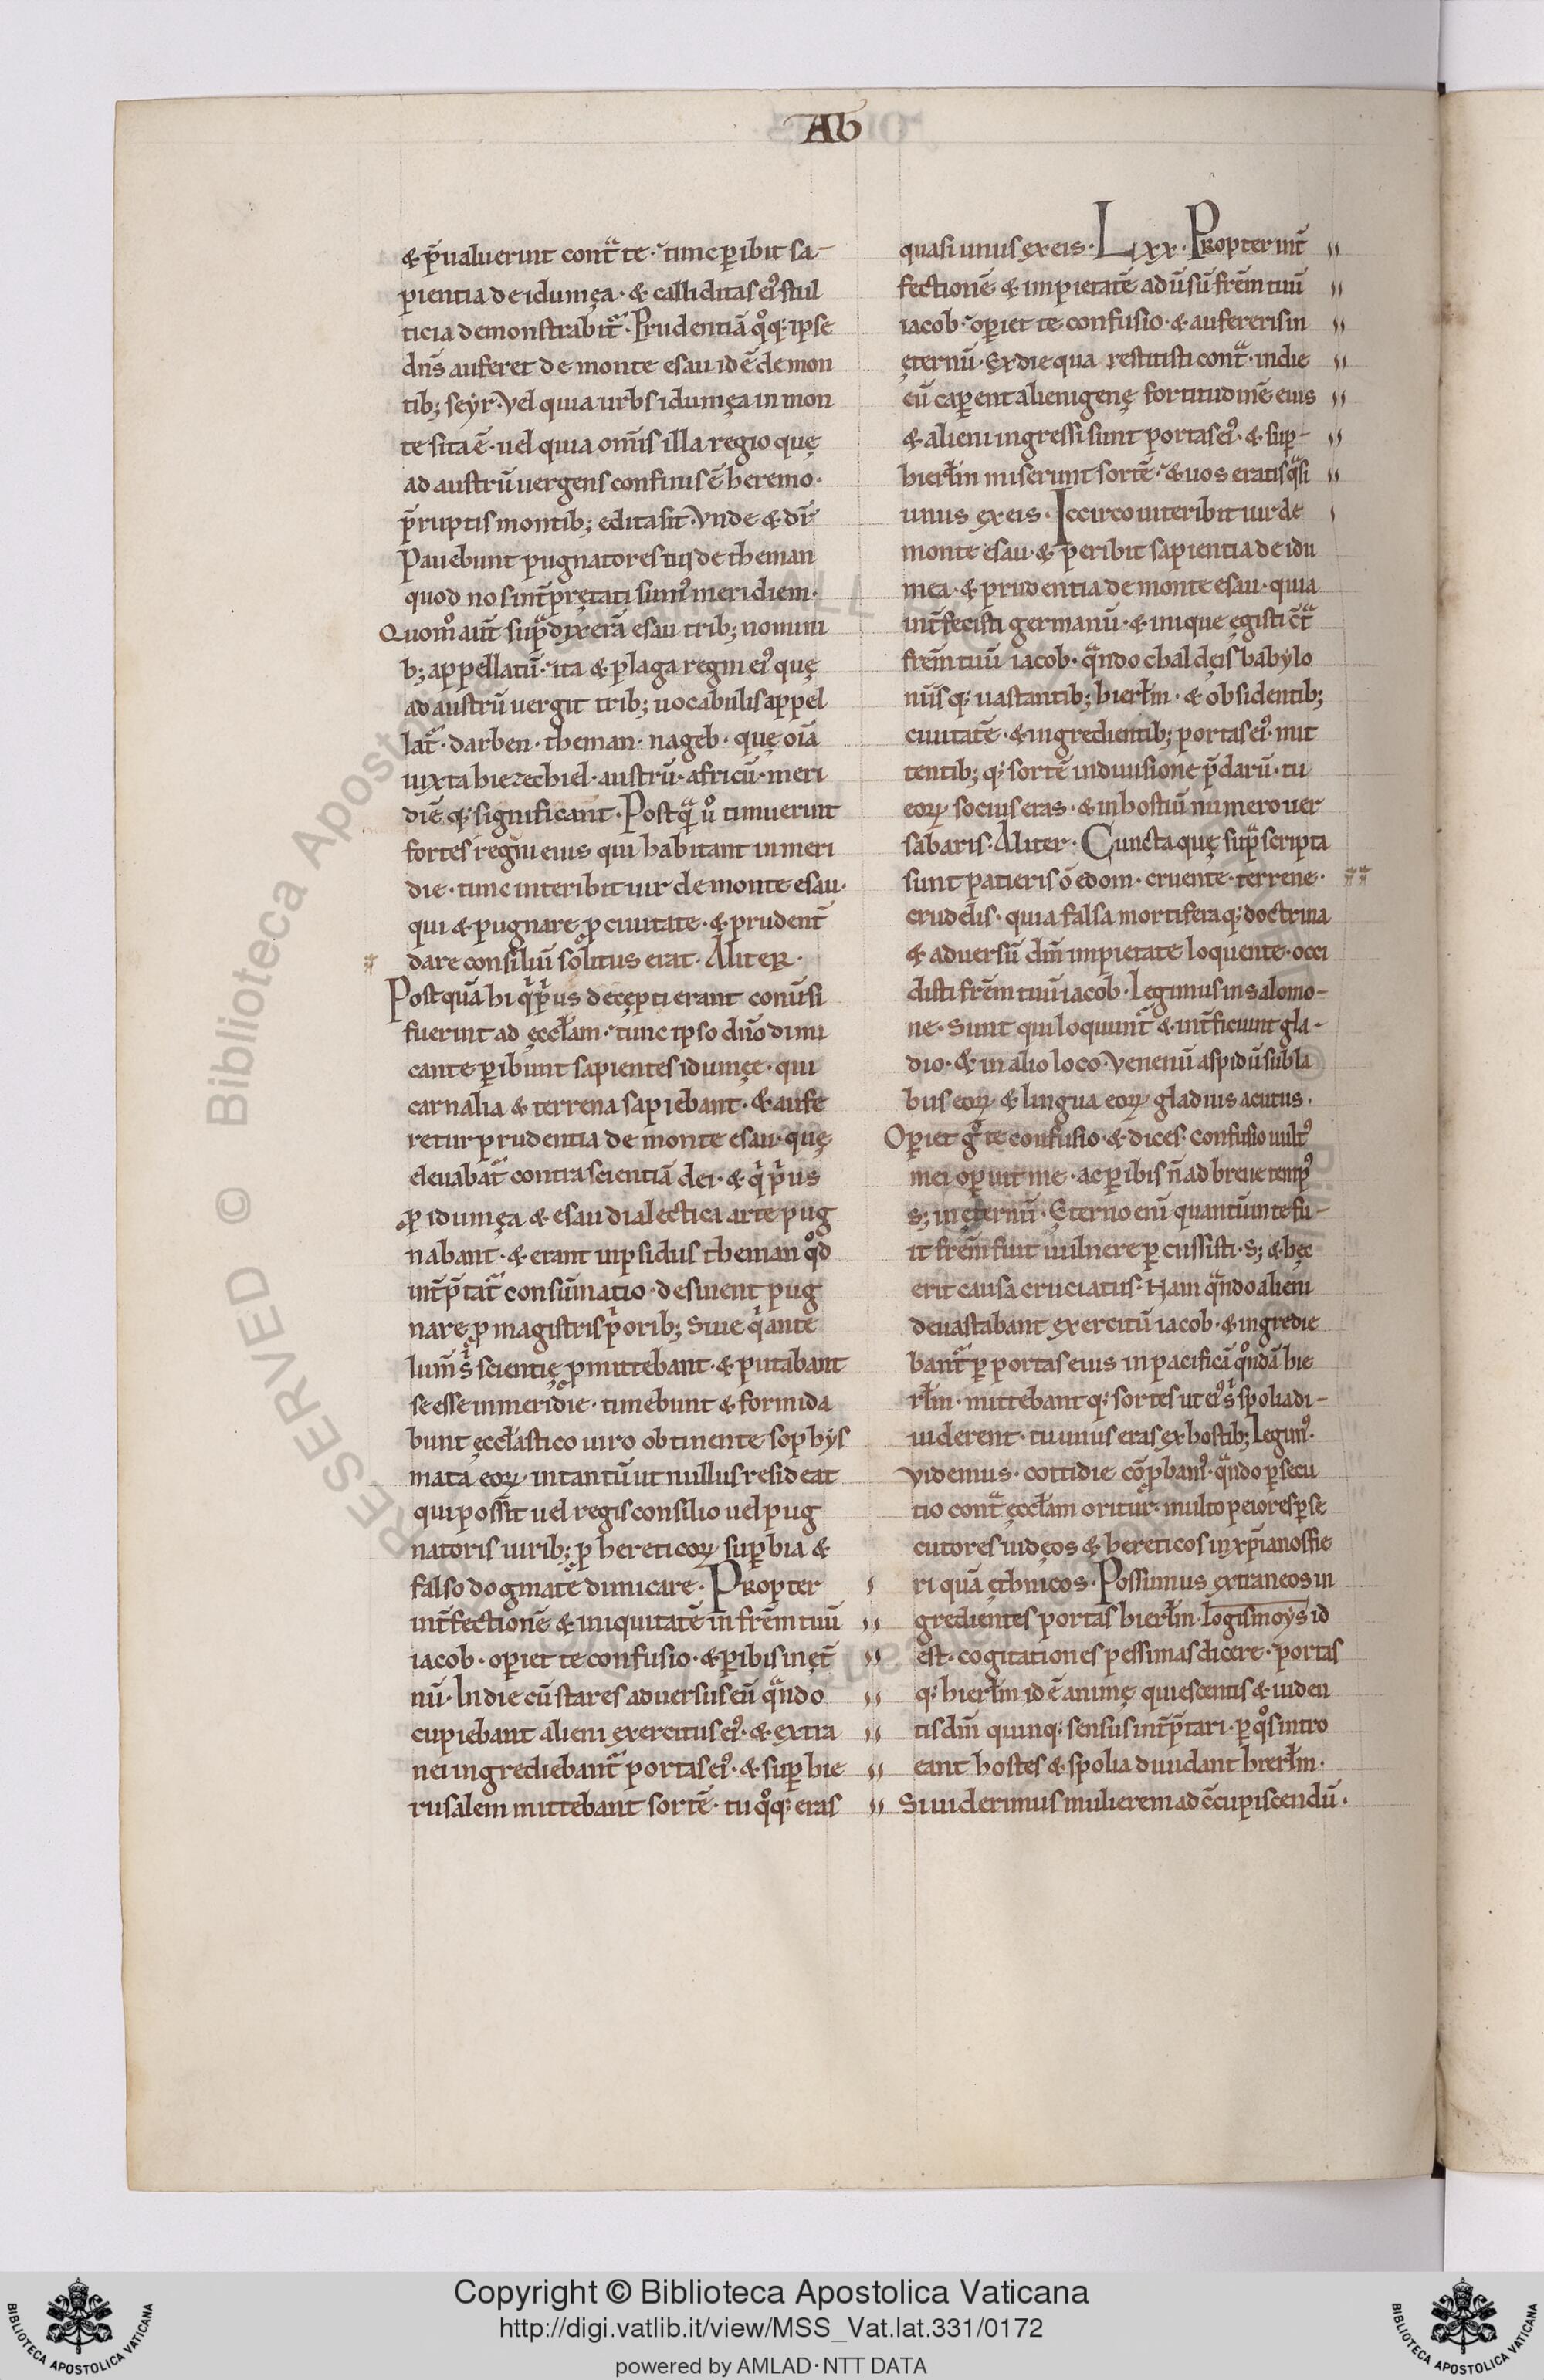 Ab
& p̄ualuerint contͣ te· tunc ꝑibit sa-
pientia de idumęa· & calliditas ei᾽ stul
ticia demonstrabit᷑· Prudentiā qͦq; ipse
dn̄s auferet de monte esau id ē de mon
tib; seyr· Vel quia urbs idumęa in mon
te sita ē· uel quia om̄is illa regio quę
ad austrū uergens confinis ē heremo·
p̄ruptis montib; edita sit· Vnde & dr̄
Pauebunt pugnatores tui de theman
quod nos int̄pretati sum᾽ meridiem·
Quom̊ aut̄ supͣ dixerā esau trib; nomini
b; appellatū· ita & plaga regni ei᾽ quę
ad austrū uergit trib; uocabulis appel
lat᷑· darben· theman· nageb· quę oīa
iuxta hiezechiel· austrū· africū· meri
diē q; significant· Postqͣ ů timuerint
fortes regni eius qui habitant in meri
die· tunc interibit uir de monte esau·
qui & pugnare ꝓ ciuitate· & prudent̄
dare consiliū solitus erat· Aliter·
Postquā hi qͥ pͥus decepti erant conūsi
fuerint ad ęccłam· tunc ipso dn̄o dimi
cante ꝑibunt sapientes idumęe· qui
carnalia & terrena sapiebant· & aufe
retur prudentia de monte esau· quę
eleuabat᷑ contra scientiā dei· & qͥ pͥus
ꝓ idumęa & esau dialectica arte pug
nabant· & erant in p̄sidus theman qͦd
int̄p̄tat᷑ consūmatio· desinent pug
nare ꝓ magistris pͥorib; Siue qͥ ante
lum̄ s̄ scientię ꝓmittebant· & putabant
se esse in meridie· timebunt & formida
bunt ęccłastico uiro obtinente sophys
mata eoꝝ in tantū ut nullus resideat
qui possit uel regis consilio uel pug
natoris uirib; ꝓ hereticoꝝ suꝑbia &
falso dogmate dimicare· Propter
int̄fectionē & iniquitatē in frēm tuū
iacob· oꝑiet te confusio· & ꝑibis in ęt̄
nū· In die cū stares aduersus eū qͣndo
cupiebant alieni exercitus ei᾽· & extra
nei ingrediebant᷑ portas ei᾽· & suꝑ hie
rusalem mittebant sortē· tu qͦq; eras
quasi unus ex eis· Lxx· Propter int̄
fectionē & impietatē adūsū frēm tuū
iacob· oꝑiet te confusio· & aufereris in
ęternū· Ex die qua restitisti contͣ· in die
cū caꝑent alienigenę fortitudinē eius
& alieni ingressi sunt portas ei᾽· & suꝑ-
hierłm miserunt sortē· & uos eratis qͣsi
unus ex eis· Iccirco interibit uir de
monte esau· & peribit sapientia de idu
mea· & prudentia de monte esau· quia
int̄fecisti germanū· & inique egisti c̄tͣ
frēm tuū iacob· qͣndo chaldeis babylo
niīsq; uastantib; hierłm· & obsidentib;
ciuitatē· & ingredientib; portas ei᾽· mit
tentib; q; sortē in diuisione p̄darū· tu
eoꝝ socius eras· & in hostiū numero uer
sabaris· Aliter· Cuncta quę supͣ scripta
sunt patieris ō edom· cruente· terrene·
crudelis· quia falsa mortifera q; doctrina
& aduersū dm̄ impietate loquente· occi
disti frēm tuū iacob· Legimus in salomo-
ne· Sunt qui loquunt᷑ & int̄ficiunt gla-
dio· & in alio loco· Venenū aspidū sub la
bus eoꝝ & lingua eoꝝ gladius acutus·
Oꝑiet g̊ te confusio· & dices· confusio uult᾽
mei oꝑuit me· ac ꝑibis n̄ ad breue temp᾽
s; in ęternū· Ęterno enī quantū in te fu-
it frēm fuit uulnere ꝑcussisti· S; & hęc
erit causa cruciatus· Nam qͣndo alieni
deuastabant exercitū iacob· & ingredie
bant᷑ ꝑ portas eius in pacificā qͦndā hie
rłm· mittebant q; sortes ut ei᾽ s̄ spolia di-
uiderent· tu unus eras ex hostib; Legim᾽·
Videmus· cottidie cōꝓbam᾽· qͣndo ꝑsecu
tio contͣ ęccłam oritur· multo peiores ꝑse
cutores iudęos & hereticos in xp̄ianos fie
ri quā ęthnicos· Possumus extraneos in
gredientes portas hierłm· logismoys id
est· cogitationes pessimas dicere· portas
q; hierłm id ē animę quiescentis & uiden
tis dm̄ quinq; sensus int̄p̄tari· ꝑ qͦs intro
eant hostes & spolia diuidant hierłm·
Si uiderimus mulierem ad c̄cupiscendū·
Copyright © Biblioteca Apostolica Vaticana
http://digi.vatlib.it/view/MSS_Vat.lat.331/0172
powered by AMLAD·NTT DATA